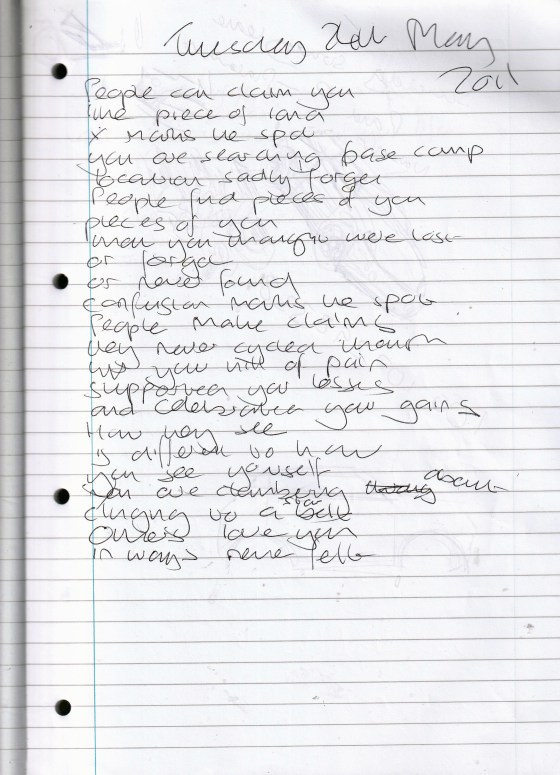 Tuesday 24th May
2011
People can claim you
like piece of land
X marks the spot
you are searching base camp
location sadly forgot
People find pieces of you
pieces of you
when you thought were lost
or forgot
or never found
confusion marks the spot
People make claims
they never cycled through
hit your hill of pain
supported your losses
and celebrated your gains
How they see
is different to how
you see yourself
You are clambering about
clinging to a star
Others love you
in ways never felt